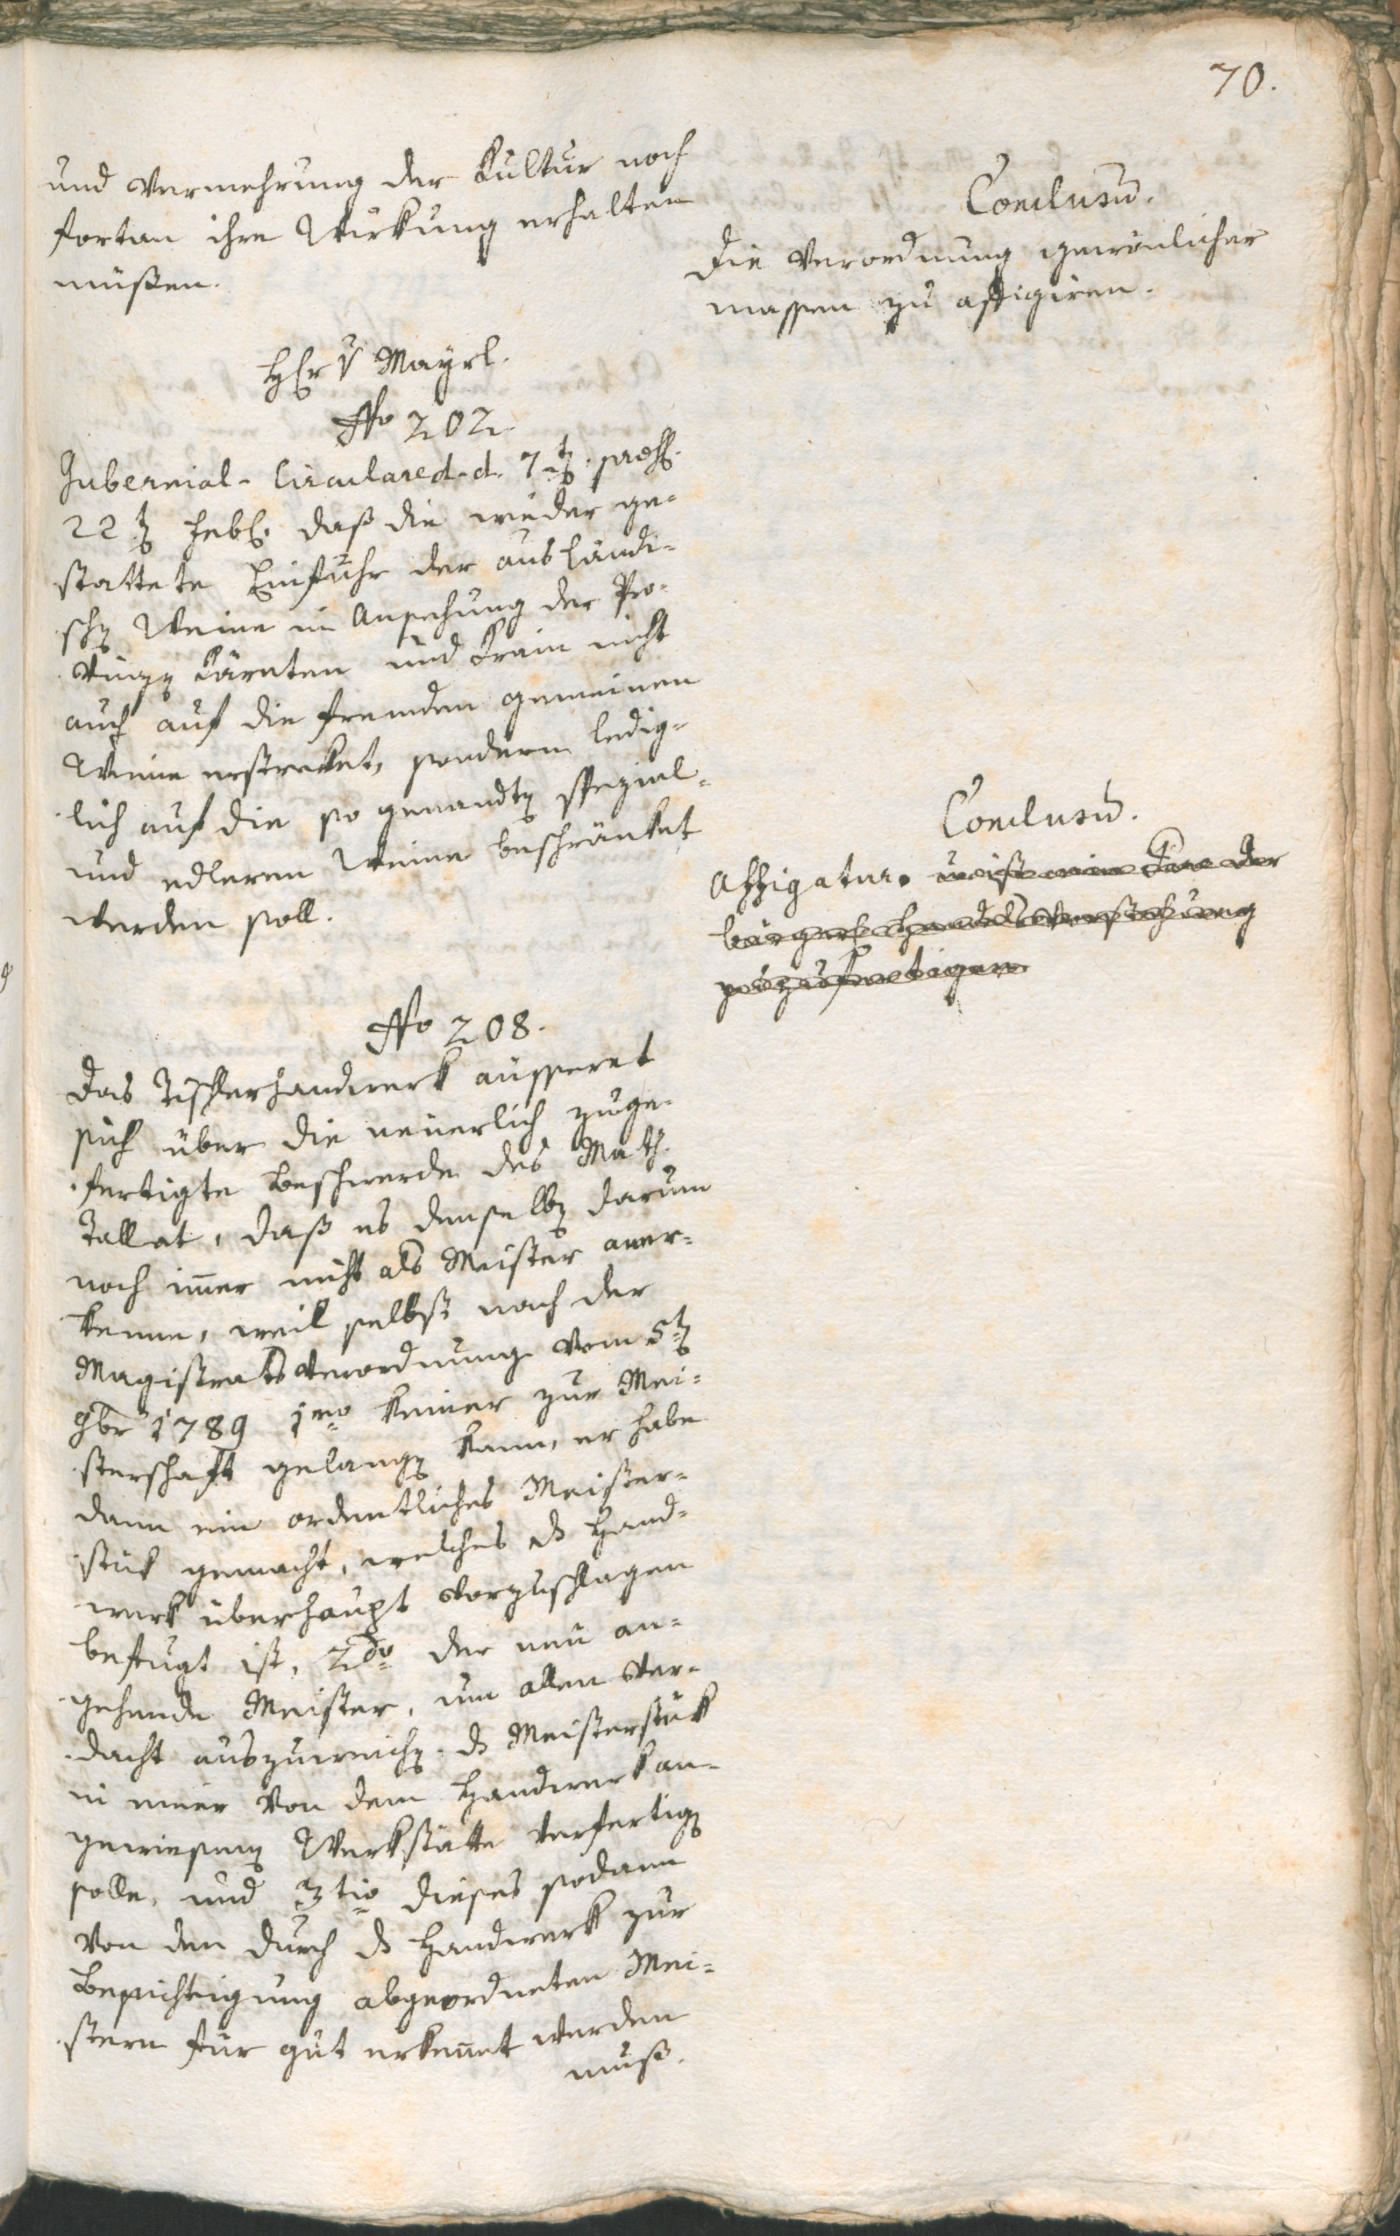 70.
und Vermehrung der Kultur noch
fortan ihre Wirkung erhalten
müßen.
Conclusũ.
Die Verordnung gewönlicher
massen zu affigiren.
Hr v Mayrl.
No 202.
Gubernial-Circulare d.d. 7t. praes.
22t Febr. daß die wieder ge-
stattete Einfuhr der ausländi-
schen Weine in Ansehung der Pro-
vinzen Kärnten und Krain nicht
auch auf die fremden gemeinen
Weine erstreket, sondern ledig-
lich auf die so genandten spezial-
und edleren Weine beschränket
werden soll.
Conclusũ.
Affigatur.
No 208.
Das Tischlerhandwerk äusseret
sich über die neuerlich zuge-
fertigte Beschwerde des Math.
Tallat, daß es denselben darum
noch im̃er nicht als Meister aner-
kenne, weil selbst nach der
Magistratsverordnung vom 5ten
9br 1789 1mo keiner zur Mei-
sterschaft gelangen kann, er habe
dann ein ordentliches Meister-
stük gemacht, welches ds Hand-
werk überhaupt vorzuschlagen
befugt ist, 2do der neu an-
gehende Meister, um allen Ver-
dacht auszuweichen ds Meisterstük
in einer von dem Handwerk an-
gewiesenen Werkstätte verfertigen
solle, und 3tio dieses sodann
von den durch ds Handwerk zur
Besichtigung abgeordneten Mei-
stern für gut erkeñet werden
muß.